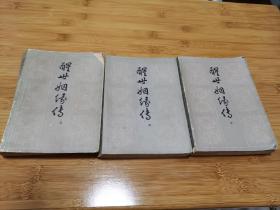 醒世姻缘传
上
醒世姻缘传
中
醒世姻缘传
下